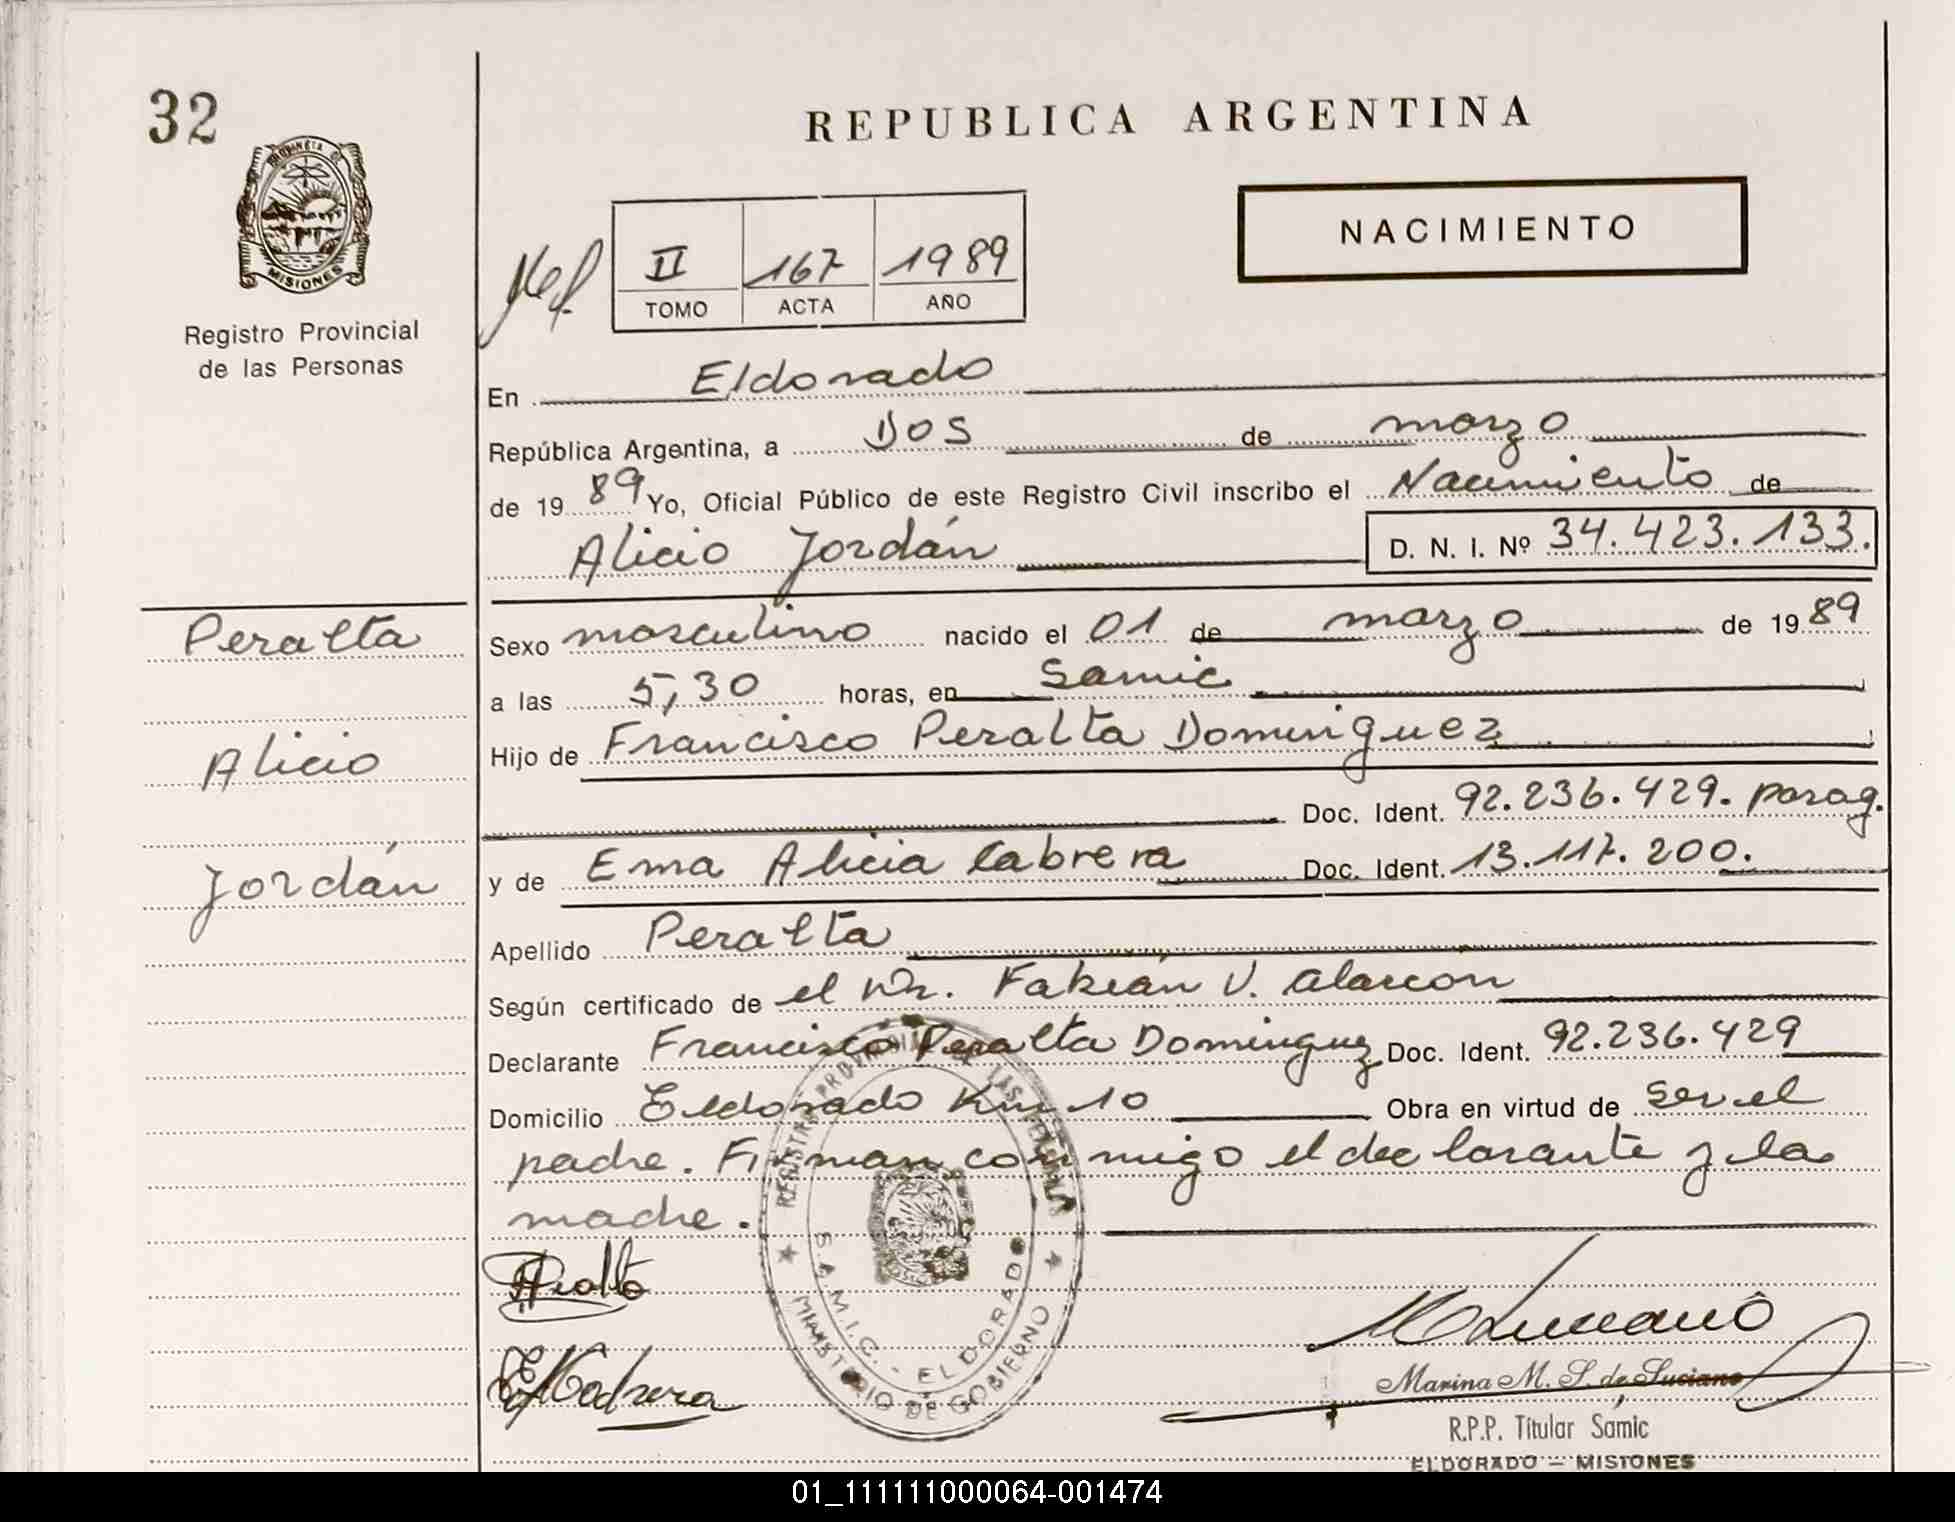 32
REPUBLICA ARGENTINA
PROVINCIA DE
MISIONES
NACIMIENTO
II 167 1989
TOMO ACTA AÑO
Registro Provincial
de las Personas
En Eldorado
República Argentina, a Dos de marzo
de 1989 Yo, Oficial Público de este Registro Civil inscribo el Nacimiento de
Alicio Jordán D. N. I. Nº 34.423.133.
Peralta
Sexo masculino nacido el 01 de marzo de 1989
a las 5,30 horas, en Samic
Alicio
Hijo de Francisco Peralta Dominguez
Doc. Ident. 92.236.429. parag.
Jordán
y de Ema Alicia Cabrera Doc. Ident. 13.117.200.
Apellido Peralta
Según certificado de el Dr. Fabián V. Alarcon
Declarante Francisco Peralta Dominguez Doc. Ident. 92.236.429
Domicilio Eldorado Km 10 Obra en virtud de ser el
padre. Firman conmigo el declarante y la
madre.
REGISTRO PROVINCIAL DE LAS PERSONAS
S.A.M.I.C. - ELDORADO
MINISTERIO DE GOBIERNO
Marina M. S. de Luciano
R.P.P. Titular Samic
ELDORADO - MISIONES
01_111111000064-001474